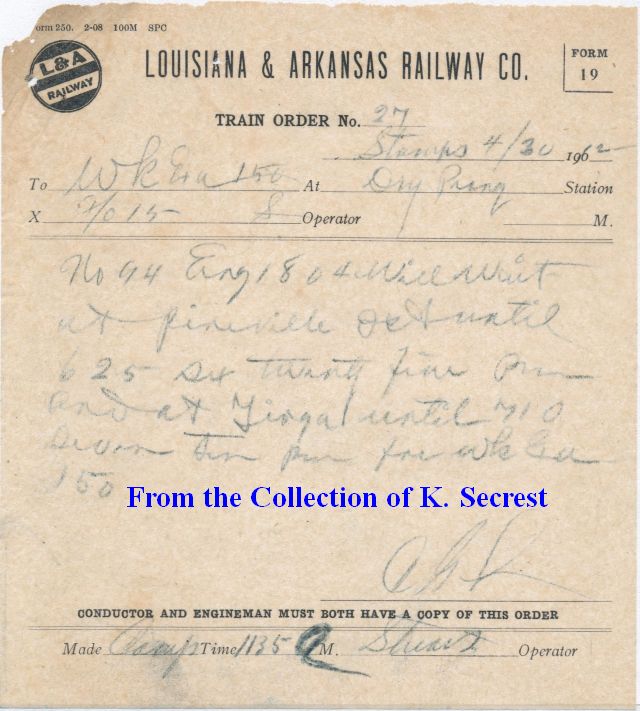 orm 250. 2-08 100M SPC
L&A
RAILWAY
LOUISIANA & ARKANSAS RAILWAY CO.
FORM
19
TRAIN ORDER No. 27
Stamps 4/30 1962
To Wk Exa 150 At Dry Prong Station
X S Operator M.
No 94 Eng 1804 will wait
at Pineville until
625 six twenty five pm
and at Tioga until 710
Seven Ten pm for wk Exa
150
From the Collection of K. Secrest
CONDUCTOR AND ENGINEMAN MUST BOTH HAVE A COPY OF THIS ORDER
Made Comp Time 1135 A M. Operator